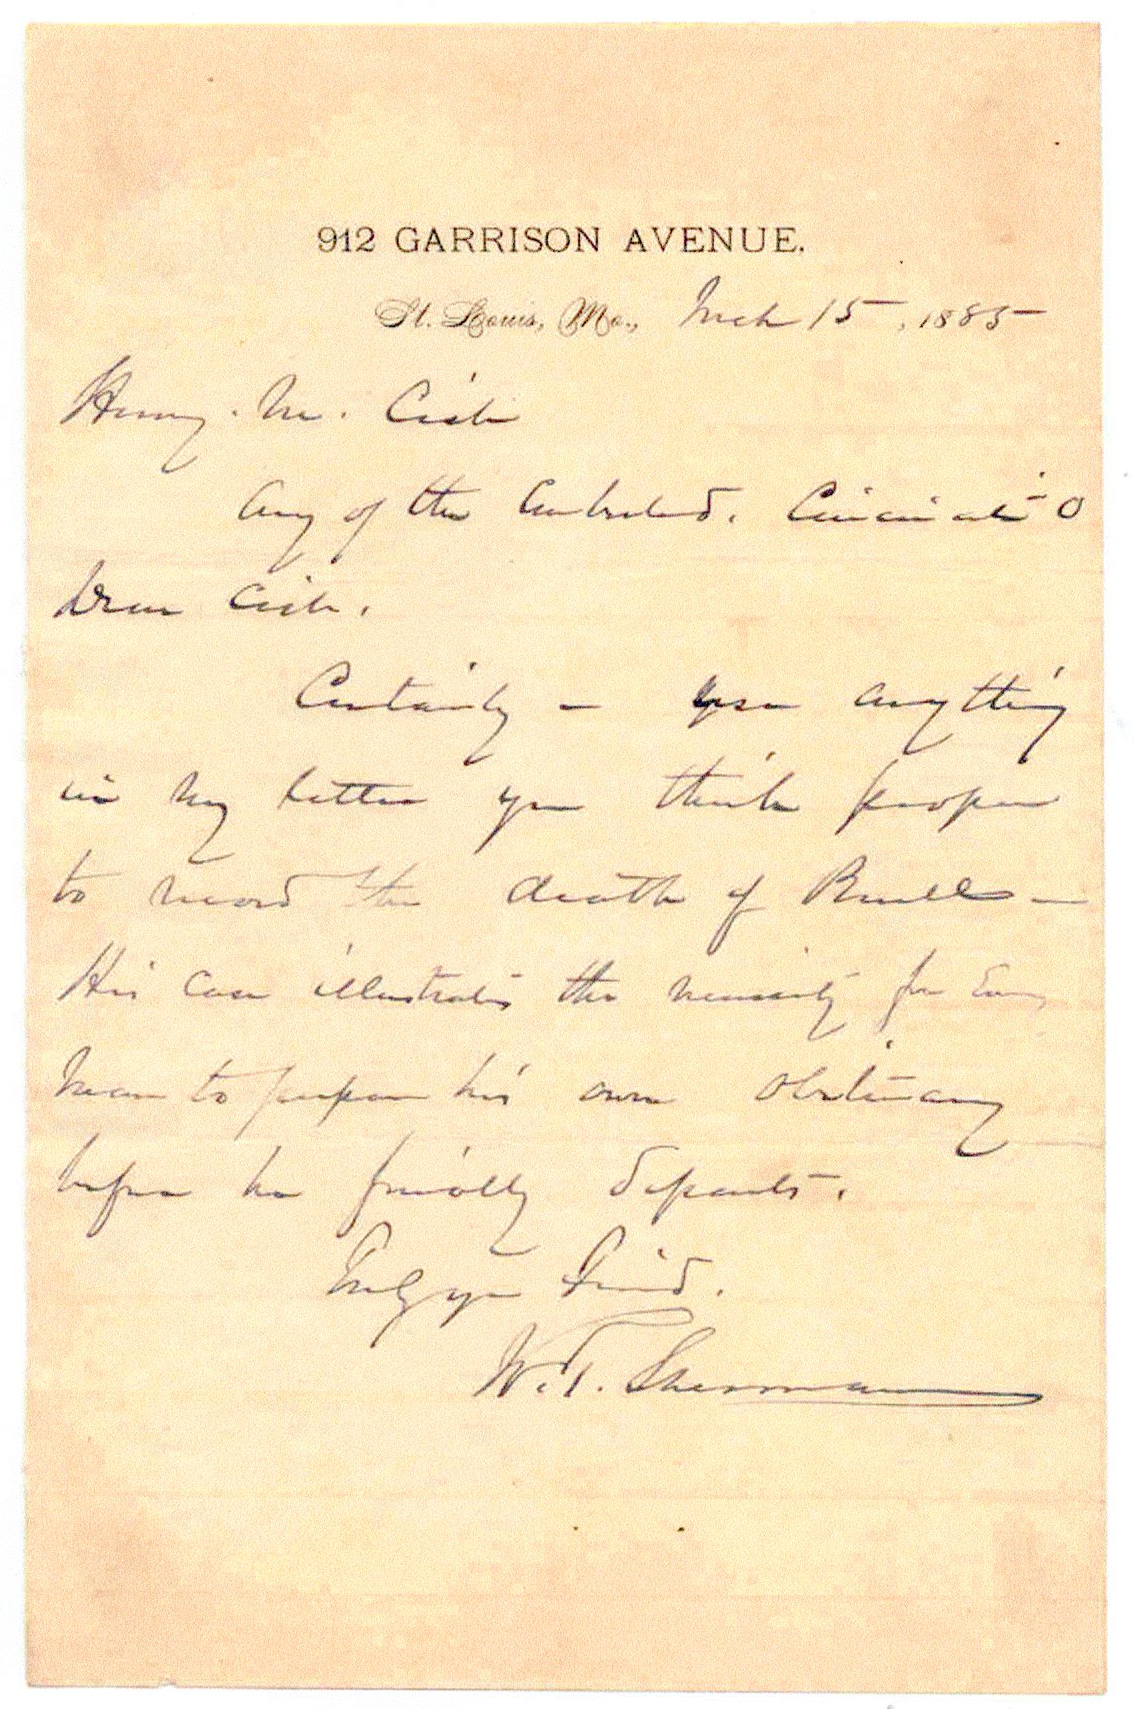 912 GARRISON AVENUE.
St. Louis, Mo., Mch 15, 1885
Henry. M. Cist
Army of the Cumberland. Cincinnati O
Dear Cist.
Certainly — use anything
in my letter you think proper
to record the death of Buell —
His case illustrates the necessity for Every
man to prepare his own obituary
before he finally departs.
Truly your friend.
W. T. Sherman